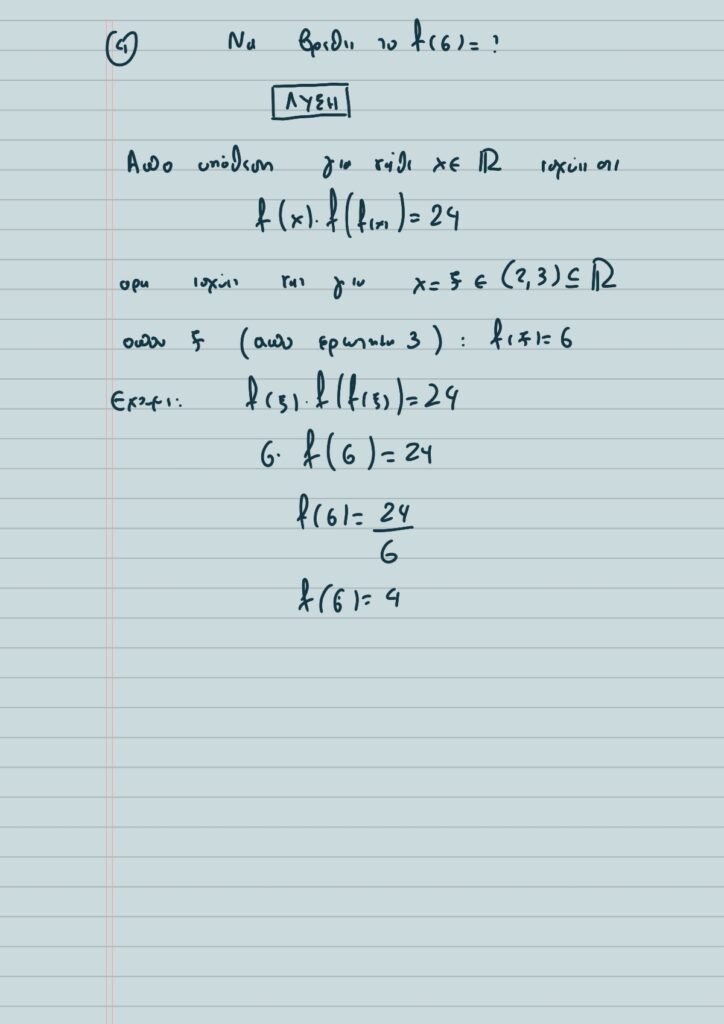 ④ Να βρεθεί το f(6)= ?
ΛΥΣΗ
Απο υπόθεση για κάθε x∈ ℝ ισχύει οτι
f(x)·f(f(x))=24
αρα ισχύει και για x=ξ∈(2,3)⊆ℝ
οπου ξ (απο ερωτημα 3): f(ξ)=6
Εχουμε: f(ξ)·f(f(ξ))=24
6·f(6)=24
f(6)=24/6
f(6)=4